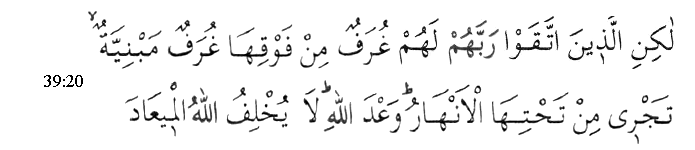 لٰكِنِ الَّذ۪ينَ اتَّقَوْا رَبَّهُمْ لَهُمْ غُرَفٌ مِنْ فَوْقِهَا غُرَفٌ مَبْنِيَّةٌۙ
39:20
تَجْر۪ى مِنْ تَحْتِهَا الْاَنْهَارُۜ وَعْدَ اللّٰهِۜ لَا يُخْلِفُ اللّٰهُ الْم۪يعَادَ